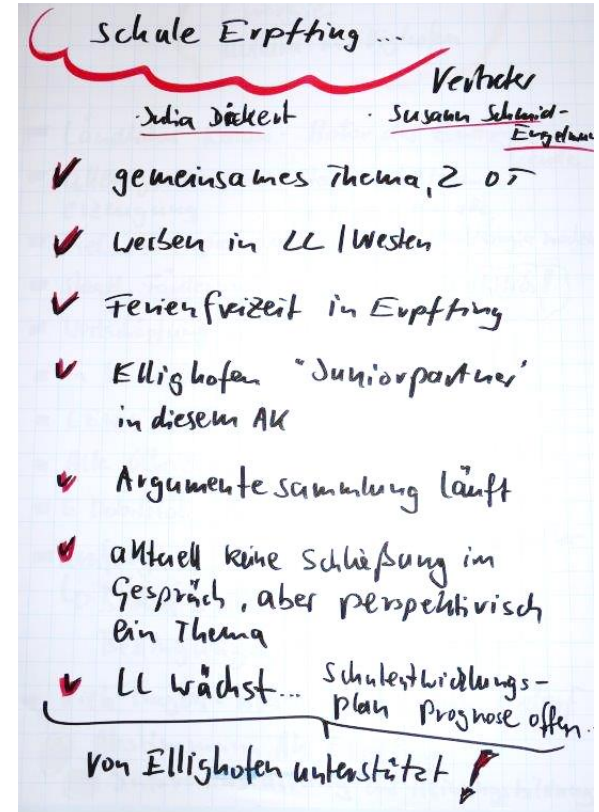 Schule Erpfting...
Vertreter
· Julia Dickert · Susann Schmid-
Engelmann
✓ gemeinsames Thema, 2 OT
✓ Werben in LL / Westen
✓ Ferienfreizeit in Erpfting
✓ Ellighofen "Juniorpartner"
in diesem AK
✓ Argumentesammlung läuft
✓ aktuell keine Schließung im
Gespräch, aber perspektivisch
ein Thema
✓ LL wächst... Schulentwicklungs-
plan Prognose offen...
von Ellighofen unterstützt !